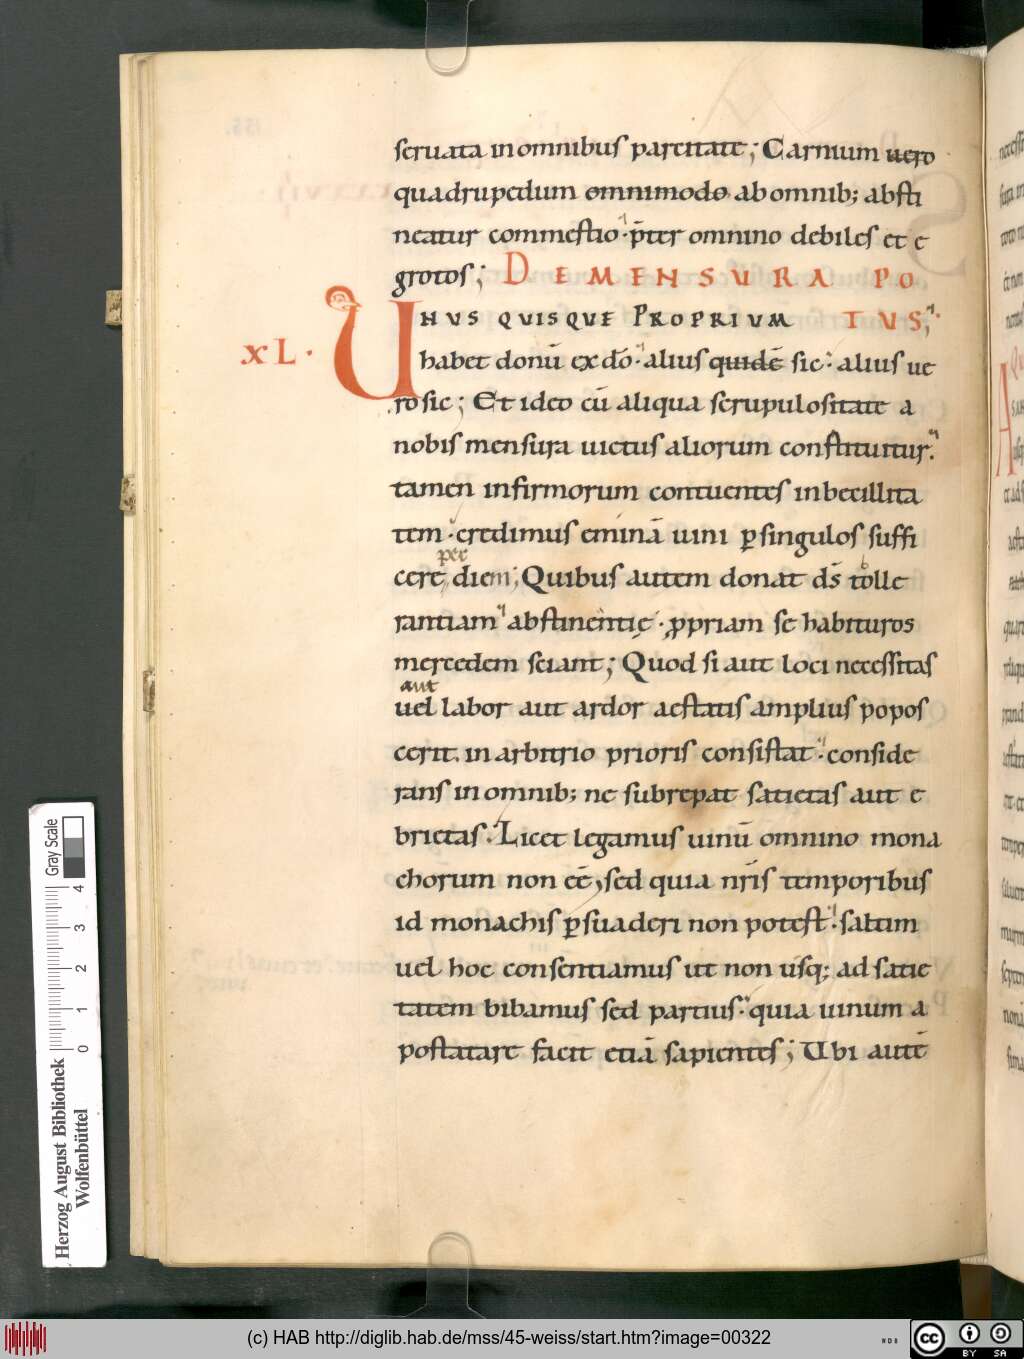 seruata in omnibus parcitate; Carnium uero
quadrupedum omnimodo ab omnib; absti
neatur commestio · p̄ter omnino debiles et e
grotos; DE MENSURA PO
UNUS QUISQUE PROPRIUM TUS;
XL·
habet donū ex dō · alius quidē sic · alius ue
ro sic; Et ideo cū aliqua scrupulositate a
nobis mensura uictus aliorum constituitur.
tamen infirmorum contuentes inbecillita
tem · credimus eminā uini ꝑ singulos suffi
per
cere diem; Quibus autem donat d̄s tolle
rantiam abstinentie · ꝓpriam se habituros
mercedem sciant; Quod si aut loci necessitas
aut
uel labor aut ardor aestatis amplius popos
cerit. in arbitrio prioris consistat · conside
rans in omnib; ne subrepat satietas aut e
brietas. Licet legamus uinū omnino mona
chorum non eē, sed quia nr̄is temporibus
id monachis ꝑsuaderi non potest · saltim
uel hoc consentiamus ut non usq; ad satie
tatem bibamus sed partius · quia uinum a
postatare facit etiā sapientes; Ubi autē
Gray Scale
0 1 2 3 4
Herzog August Bibliothek
Wolfenbüttel
(c) HAB http://diglib.hab.de/mss/45-weiss/start.htm?image=00322
cc BY SA